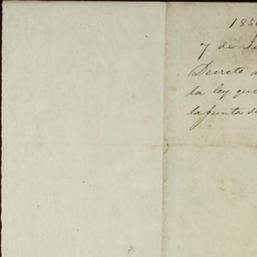 185
7 de
Decreto
la ley que
la Junta d